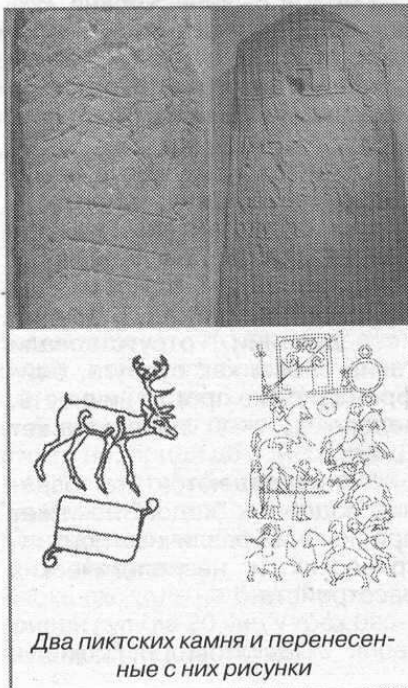 Два пиктских камня и перенесен-
ные с них рисунки